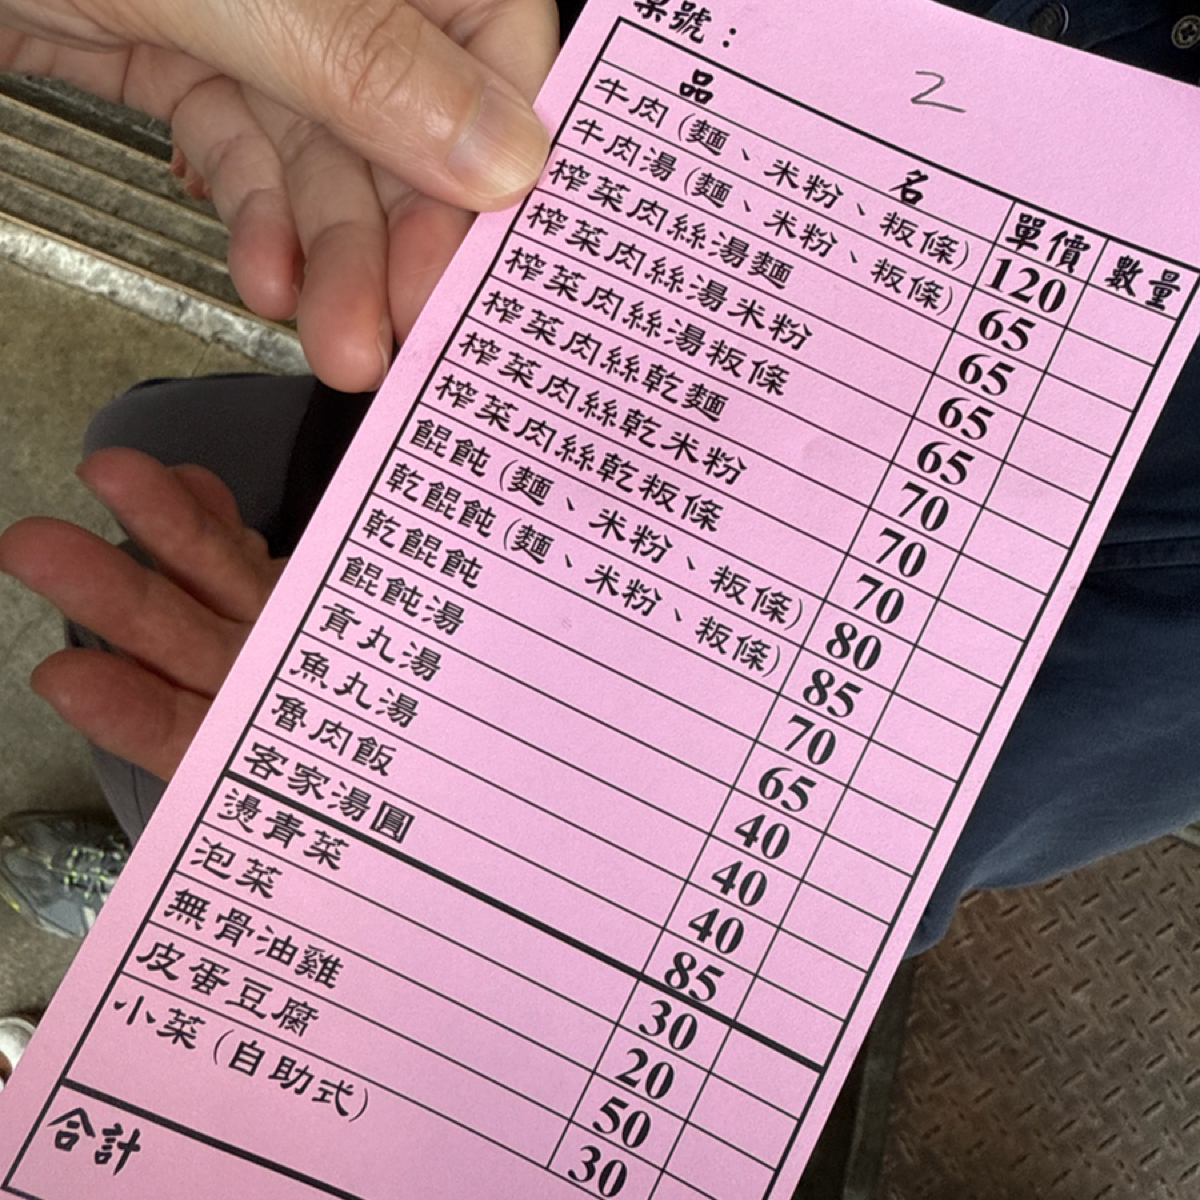 桌號：
2
品名 單價 數量
牛肉(麵、米粉、粄條) 120
牛肉湯(麵、米粉、粄條) 65
榨菜肉絲湯麵 65
榨菜肉絲湯米粉 65
榨菜肉絲湯粄條 65
榨菜肉絲乾麵 70
榨菜肉絲乾米粉 70
榨菜肉絲乾粄條 70
餛飩(麵、米粉、粄條) 80
乾餛飩(麵、米粉、粄條) 85
乾餛飩 70
餛飩湯 65
貢丸湯 40
魚丸湯 40
魯肉飯 40
客家湯圓 85
燙青菜 30
泡菜 20
無骨油雞 50
皮蛋豆腐 30
小菜(自助式)
合計